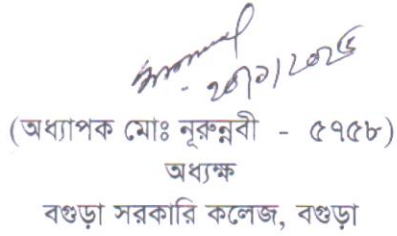 (অধ্যাপক মোঃ নূরুন্নবী - ৫৭৫৮)
অধ্যক্ষ
বগুড়া সরকারি কলেজ, বগুড়া